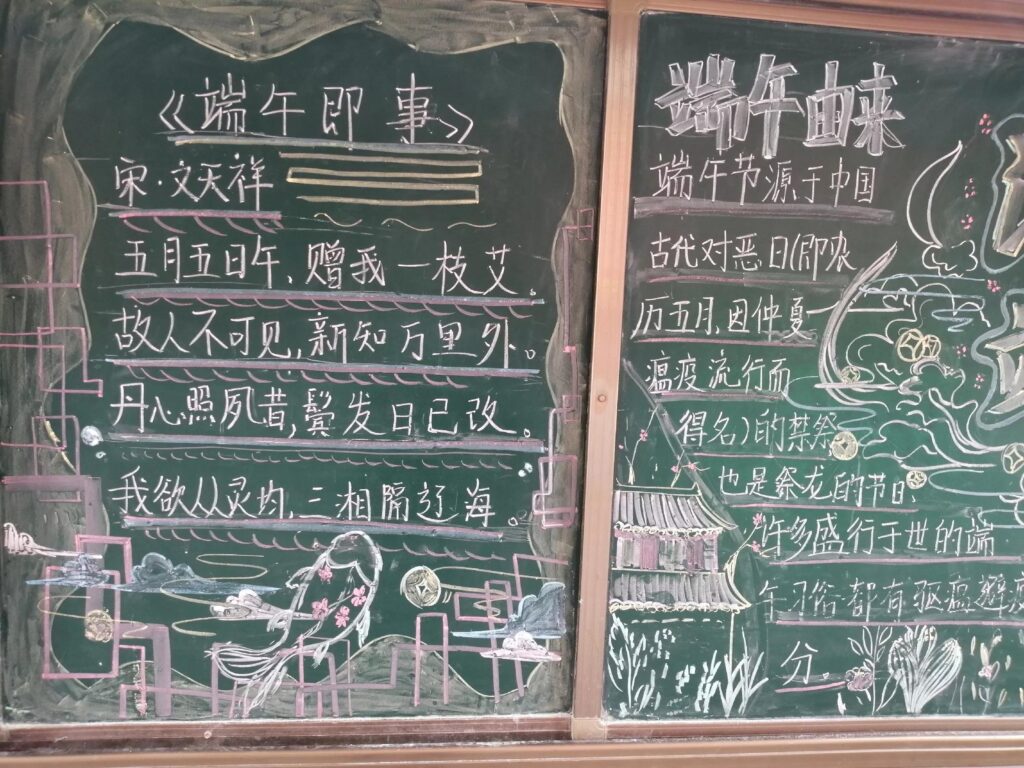 《端午即事》
宋·文天祥
五月五日午,赠我一枝艾。
故人不可见,新知万里外。
丹心照夙昔,鬓发日已改。
我欲从灵均,三湘隔辽海。
端午由来
端午节源于中国
古代对恶日(即农
历五月,因仲夏
瘟疫流行而
得名)的禁祭
也是祭龙的节日、
许多盛行于世的端
午习俗都有驱瘟避疫
分.